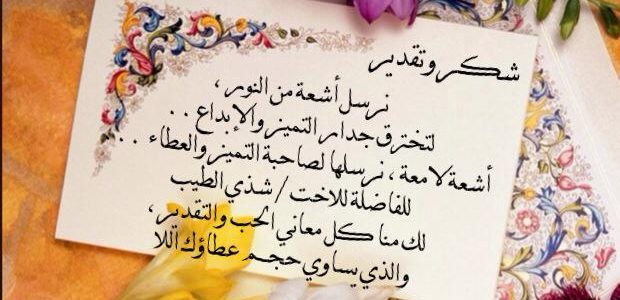 شكر وتقدير
نرسل أشعة من النور ،
لتخترق جدار التميز والإبداع ..
أشعة لامعة ، نرسلها لصاحبة التميز والعطاء ..
للفاضلة للاخت / شذي الطيب
لك منا كل معاني الحب والتقدير ،
والذي يساوي حجم عطاؤك اللا